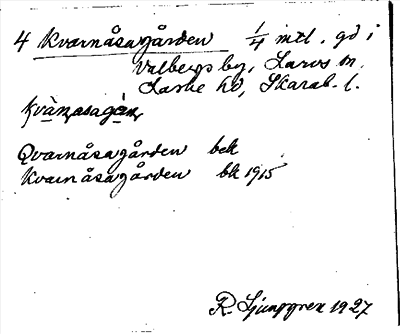 4 Kvarnåsagården 1/4 mtl. gd i
Valbergs by, Larvs sn.
Laske hd, Skarab. l.
kvànasagàṇ
Qvarnåsagården bek
Kvarnåsagården bk 1915
R. Ljunggren 1927